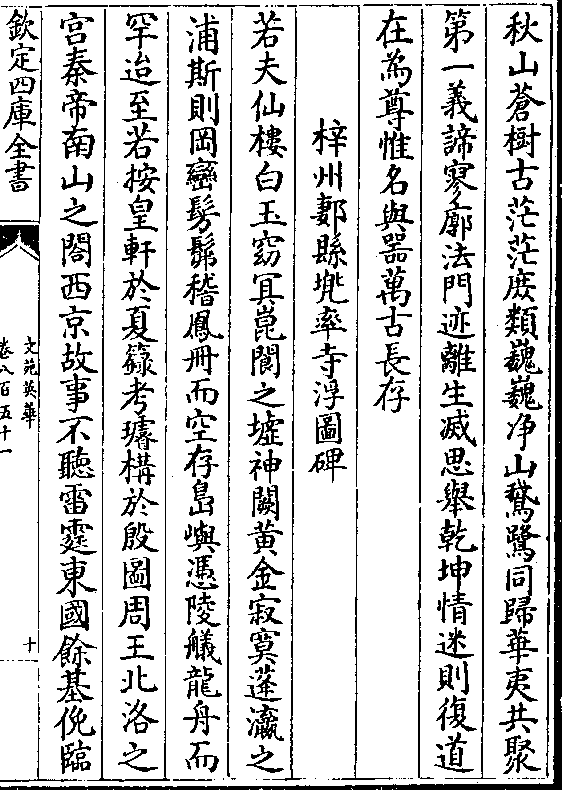 秋山蒼樹古茫茫庶類巍巍净山鵞鷺同歸華夷共聚
第一義諦寥廓法門迹離生滅思舉乾坤情迷則復道
在為尊惟名與器萬古長存
梓州郪縣兠率寺浮圖碑
若夫仙樓白玉窈冥崑閬之墟神闕黄金寂寞蓬瀛之
浦斯則岡巒髣髴稽鳳冊而空存島嶼憑陵艤龍舟而
罕迨至若按皇軒於夏籙考璿構於殷圖周王北洛之
宫秦帝南山之閣西京故事不聽雷霆東國餘基俛臨
欽定四庫全書
文苑英華
卷八百五十一
十